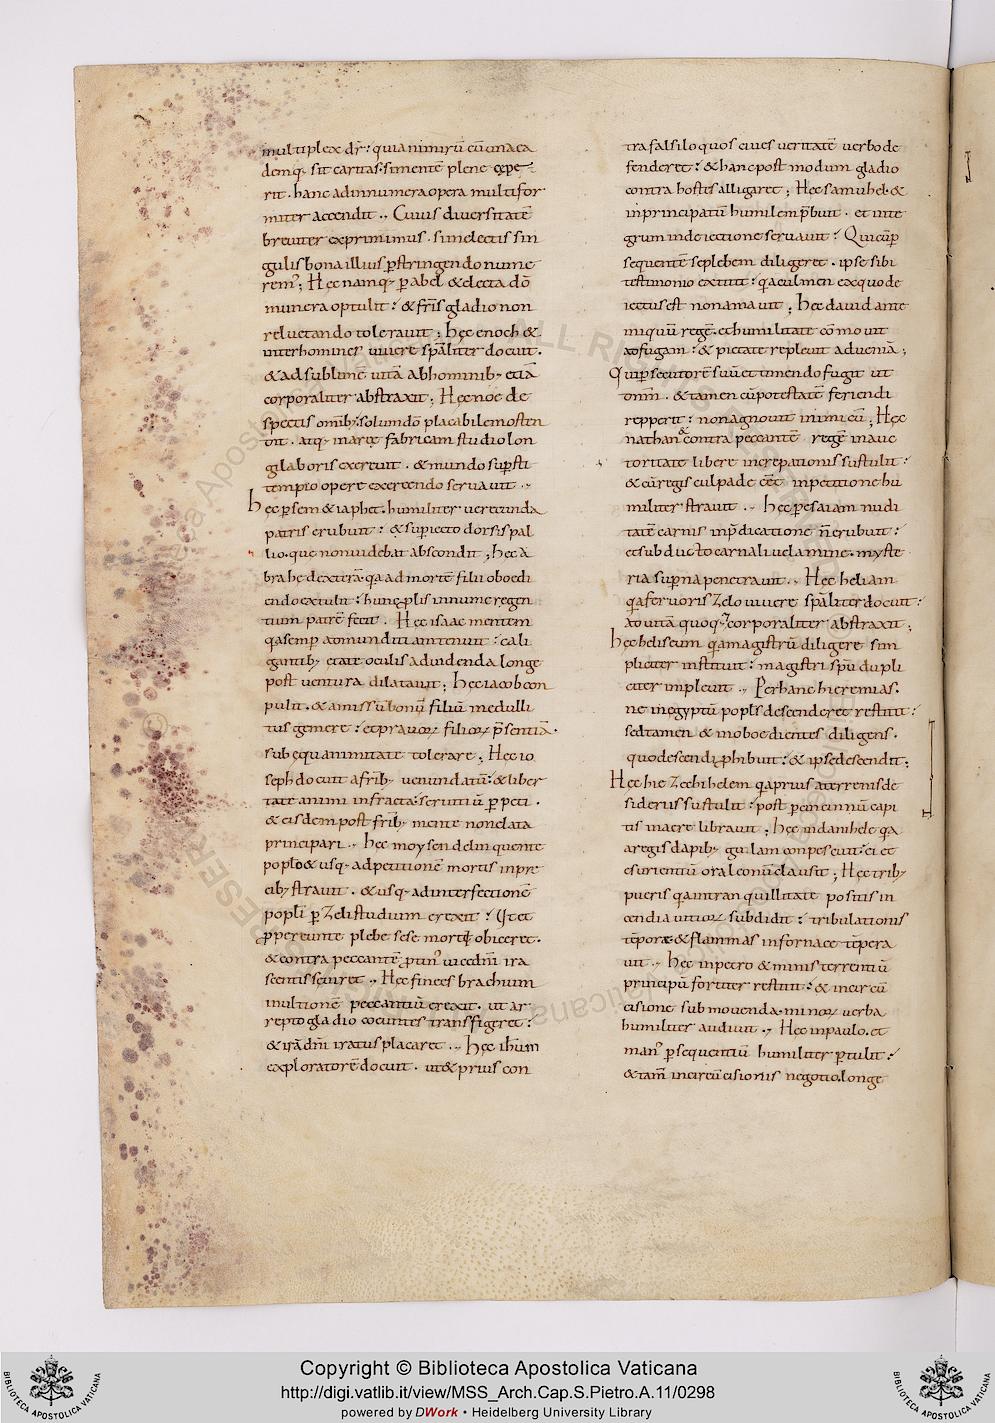 multiplex dr̄: quia nimirū cū una ea
demq; sit caritas: si mentē plene cępe
rit. hanc ad innumera opera multifor
miter accendit., Cuius diuersitatē
breuiter exprimimus. si in electis sin
gulis bona illius ꝑstringendo nume
rem'; Hęc namq; ꝑ abel & electa dō
munera optulit: & fr̄is gladio non
reluctando tolerauit; hęc enoch &
inter homines uiuere spāliter docuit.
& ad sublimē uitā ab hominib; etiā
corporaliter abstraxit; Hęc noe de
spectis omīb; solum dō placabilem osten
dit. atq; in arcę fabricam studio lon
gi laboris exercuit. & mundo suꝑsti
tem pio opere exercendo seruauit.,
hęc ꝑ sem & iaphet. humiliter uerecunda
patris erubuit: & supiecto dorsis pal
lio. que non uidebat abscondit; hęc a
brahę dexterā. qa ad mortē filii oboedi
endo extulit: hunc ꝓlis innumerę gen
tium patrē fecit. Hęc isaac mentem
qa semꝑ ad munditiā tenuit: cali
gantib; etate oculis ad uidenda longe
post uentura dilatauit; hęc iacob con
pulit. & amissū bonū filiū medulli
tus gemere: et prauoꝝ filioꝝ ꝑsentiā.
sub equanimitate tolerare; Hęc io
seph docuit a frīb; uenundatū: & liber
tate animi infracta: seruitiū ꝑpeti.
& eisdem post frīb; mente non elata
principari., hęc moysen delinquente
poplo & usq; ad petitionē mortis in pre
cib; strauit. & usq; ad interfectionē
popli ꝑ zeli studium erexit: Ut et
ꝑ pereunte plebe sese morti obiceret.
& contra peccantē ꝓtin' uice dn̄i ira
scentis seuiret., Hęc finees brachium
in ultionē peccantiū erexit. ut ar
repto gladio coeuntes transfigeret:
& irā dn̄i iratus placaret., hęc ih̄um
exploratorē docuit. ut & prius con
tra falsiloquos ciues ueritatē uerbo de
fenderet: & hanc post modum gladio
contra hostis alligaret; Hęc samuhel. &
in principatū humilem p̄buit. et inte
grum in deiectione seruauit: Qui cū ꝑ
sequentē se plebem diligeret. ipse sibi
testimonio extitit: qa culmen ex quo de
iectus est non amauit; hęc dauid ante
iniquū regē. et humilitate cōmouit
ad fugam: & pietate repleuit ad ueniā;
Qui ꝑsecutorē suū et timendo fugit ut
dn̄m. & tamen cū potestatē feriendi
repperit: non agnouit inimicū; Hęc
nathan & contra peccantē regē in auc
toritate liberę increpationis sustulit:
& cū regis culpa deeēt in petitione hu
militer strauit., hęc ꝑ esaiam nudi
tatē carnis in p̄dicatione n̄ erubuit:
et subducto carnali uelamine. myste
ria superna penetrauit., Hęc heliam
qa feruoris zelo uiuere spāliter docuit:
ad uitā quoq; corporaliter abstraxit;
hęc heliseum qa magistrū diligere sim
pliciter instituit: magistri sp̄u dupli
citer impleuit., Per hanc hieremias.
ne in egyptū popl's descenderet restitit:
sed tamen & inoboedientes diligens.
quo descendi ꝓhibuit: & ipse descendit;
Hęc hiezechihelem qa prius a terrenis de
sideriis sustulit: post ꝑ cincinnū capi
tis in aere librauit; hęc in danihele qa
a regis dapib; gulam conpescuit: ei et
esurientiū ora leonū clausit; Hęc trib;
pueris qa in tranquillitate positis in
cendia uitioꝝ subdidit: tribulationis
tēpore & flammas in fornace tēpera
uit., hęc in petro & minis terrentiū
principū fortiter restitit: & in circū
cisione submouenda. minoꝝ uerba
humiliter audiuit., Hęc in paulo. et
man' ꝑsequentiū humiliter ꝑtulit:
& tam̄ in circūcisionis negotio. longe
Copyright © Biblioteca Apostolica Vaticana
http://digi.vatlib.it/view/MSS_Arch.Cap.S.Pietro.A.11/0298
powered by DWork • Heidelberg University Library
BIBLIOTECA APOSTOLICA VATICANA
BIBLIOTECA APOSTOLICA VATICANA